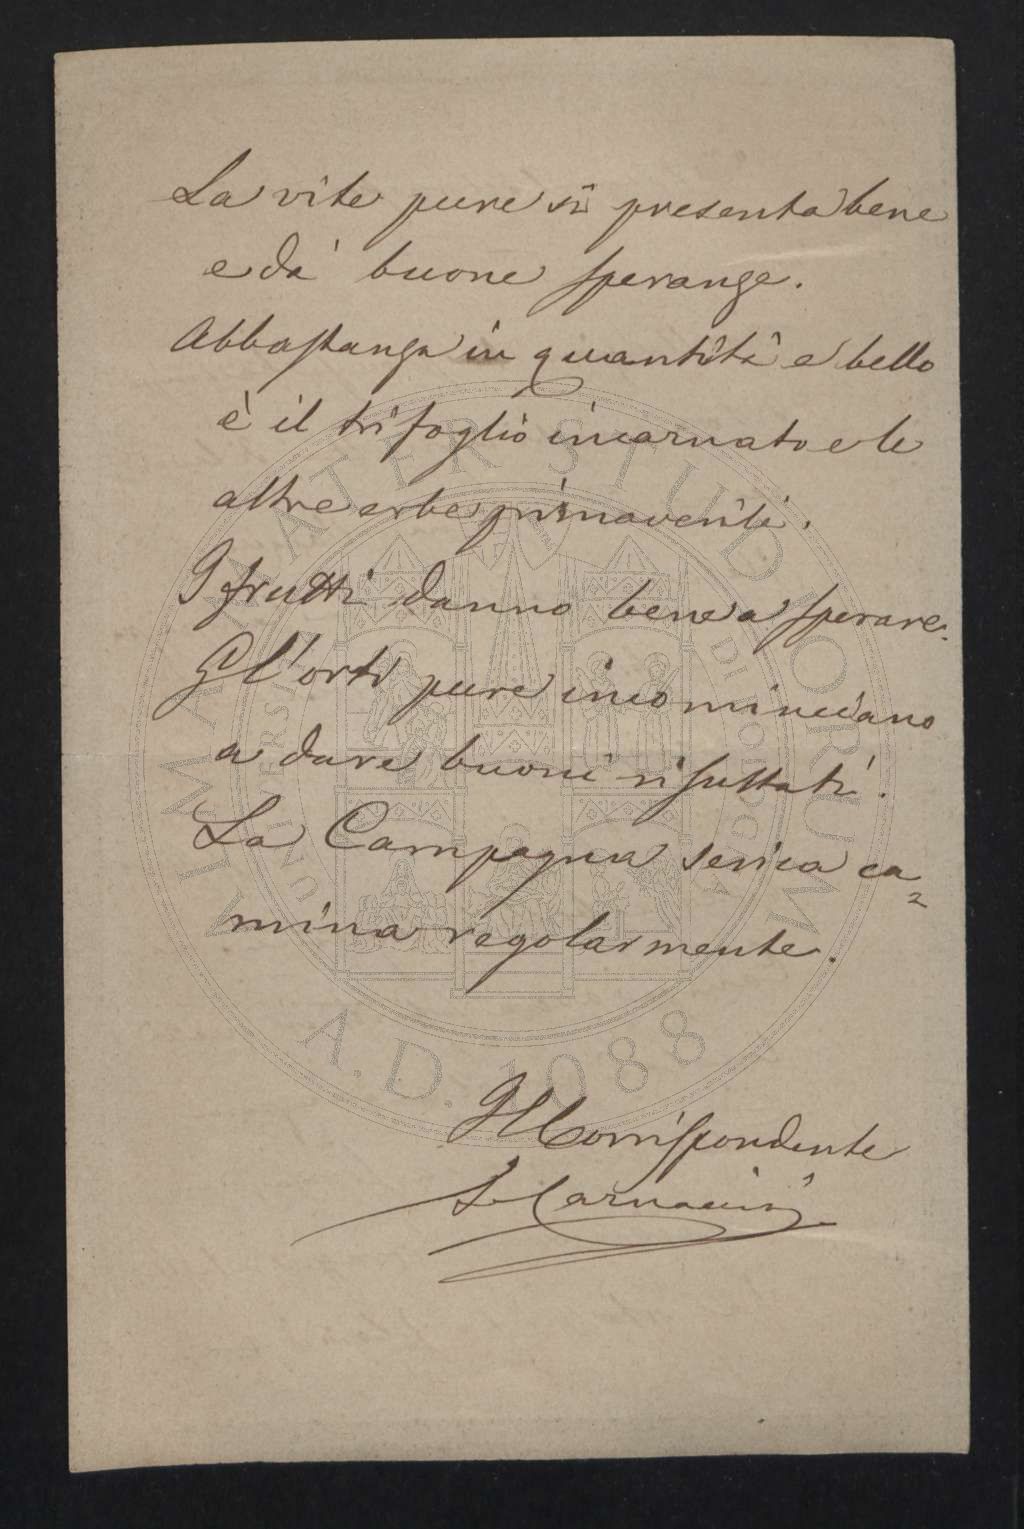 La vite pure si presenta bene
e dà buone speranze.
Abbastanza in quantità e bello
è il trifoglio incarnato e le
altre erbe primaverili.
I frutti danno bene a sperare.
Gl'orti pure incominciano
a dare buoni risultati.
La Campagna serica ca=
mina regolarmente.
Il Corrispondente
Carnacini
ALMA MATER STUDIORUM
UNIVERSITÀ DI BOLOGNA
A.D. 1088